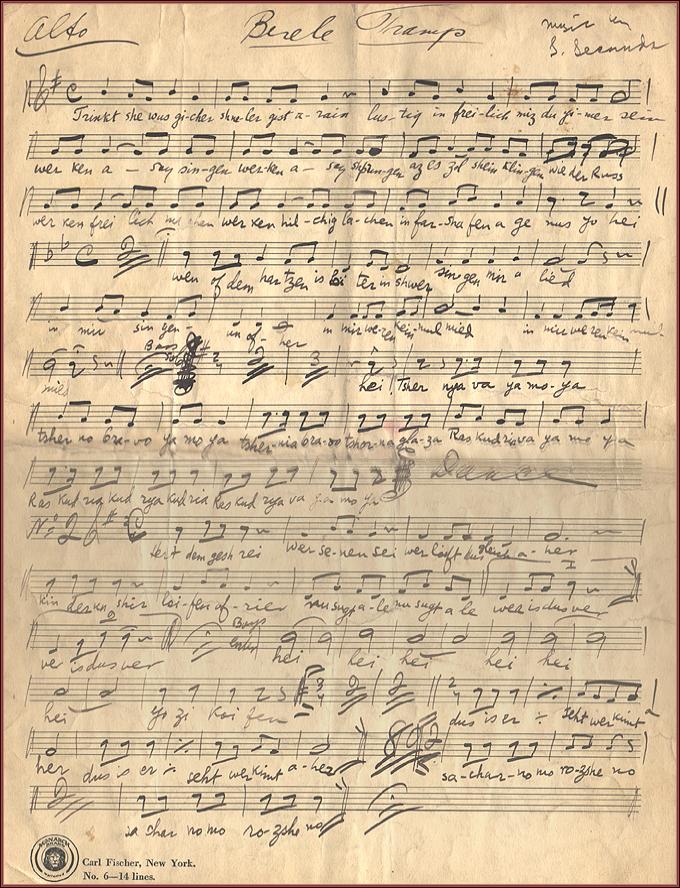 Alto Berele Tramp music
S. Secunda
Trinkt she was gi-cher shne-ler gist a-rain lus-tig in frei-lich miz du zi-mer sein
wer ken a — say sin-gen wer ken a — say az es zol shein klin-gen
wer ken frei lich wer ken hil-chig la-chen in far-sha fen a ge nus yo hei
wen of dem har tzen is bi ter in shwer sin gen mir a lied
in mir sin gen un of her in mir we-ren kein-mul mied in mir weren kein mul
mied Boys Solo hei Tsher nya va ya mo-ya
tsher no bra-vo ya mo ya tsher-nia bra-vo tshor-na gla-za Ras kudria va ya mo ya
Ras kud ria kud rya kud ria Ras kud rya va ya mo ya Dance
No. 26 hert dem gesh rei wer se-nen sei wer loift dus a-her
kin shir loi-fen of-rier nu sugt a-le nu sugt a le wer is dus wer
ver is dus ver Boys enter hei hei hei hei hei
hei yo zi koi fen dus is er seht wer kimt a
her dus is er seht wer kimt a-her 802 sa-char-no mo ro-zshe no
sa char no mo ro-zshe no
MONARCH BRAND
Carl Fischer, New York.
No. 6—14 lines.